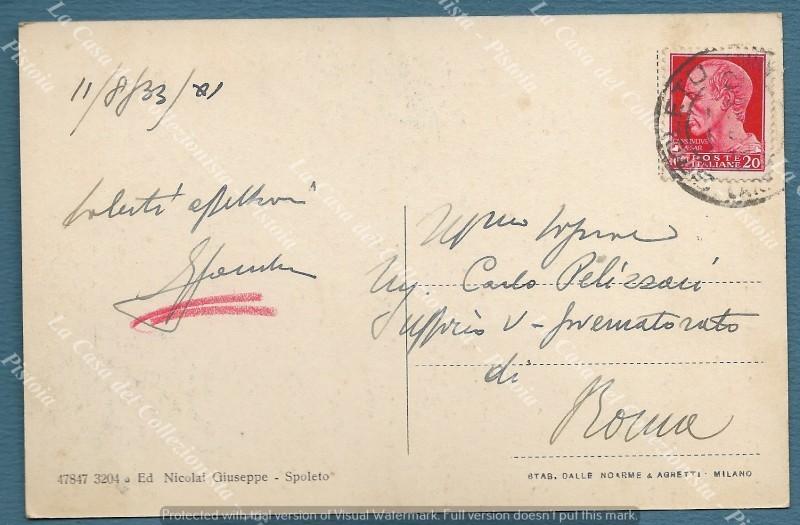 11/8/33/XI
Saluti affettuosi
Ill/mo Signore
Ing Carlo Pelizzari
Ufficio V - Governatorato
di
Roma
CAESAR
POSTE
ITALIANE 20
47847 3204 a Ed Nicolai Giuseppe - Spoleto
STAB. DALLE NOARME & AGRETTI - MILANO
La Casa del Collezionista
Pistoia
Protected with trial version of Visual Watermark. Full version doesn't put this mark.